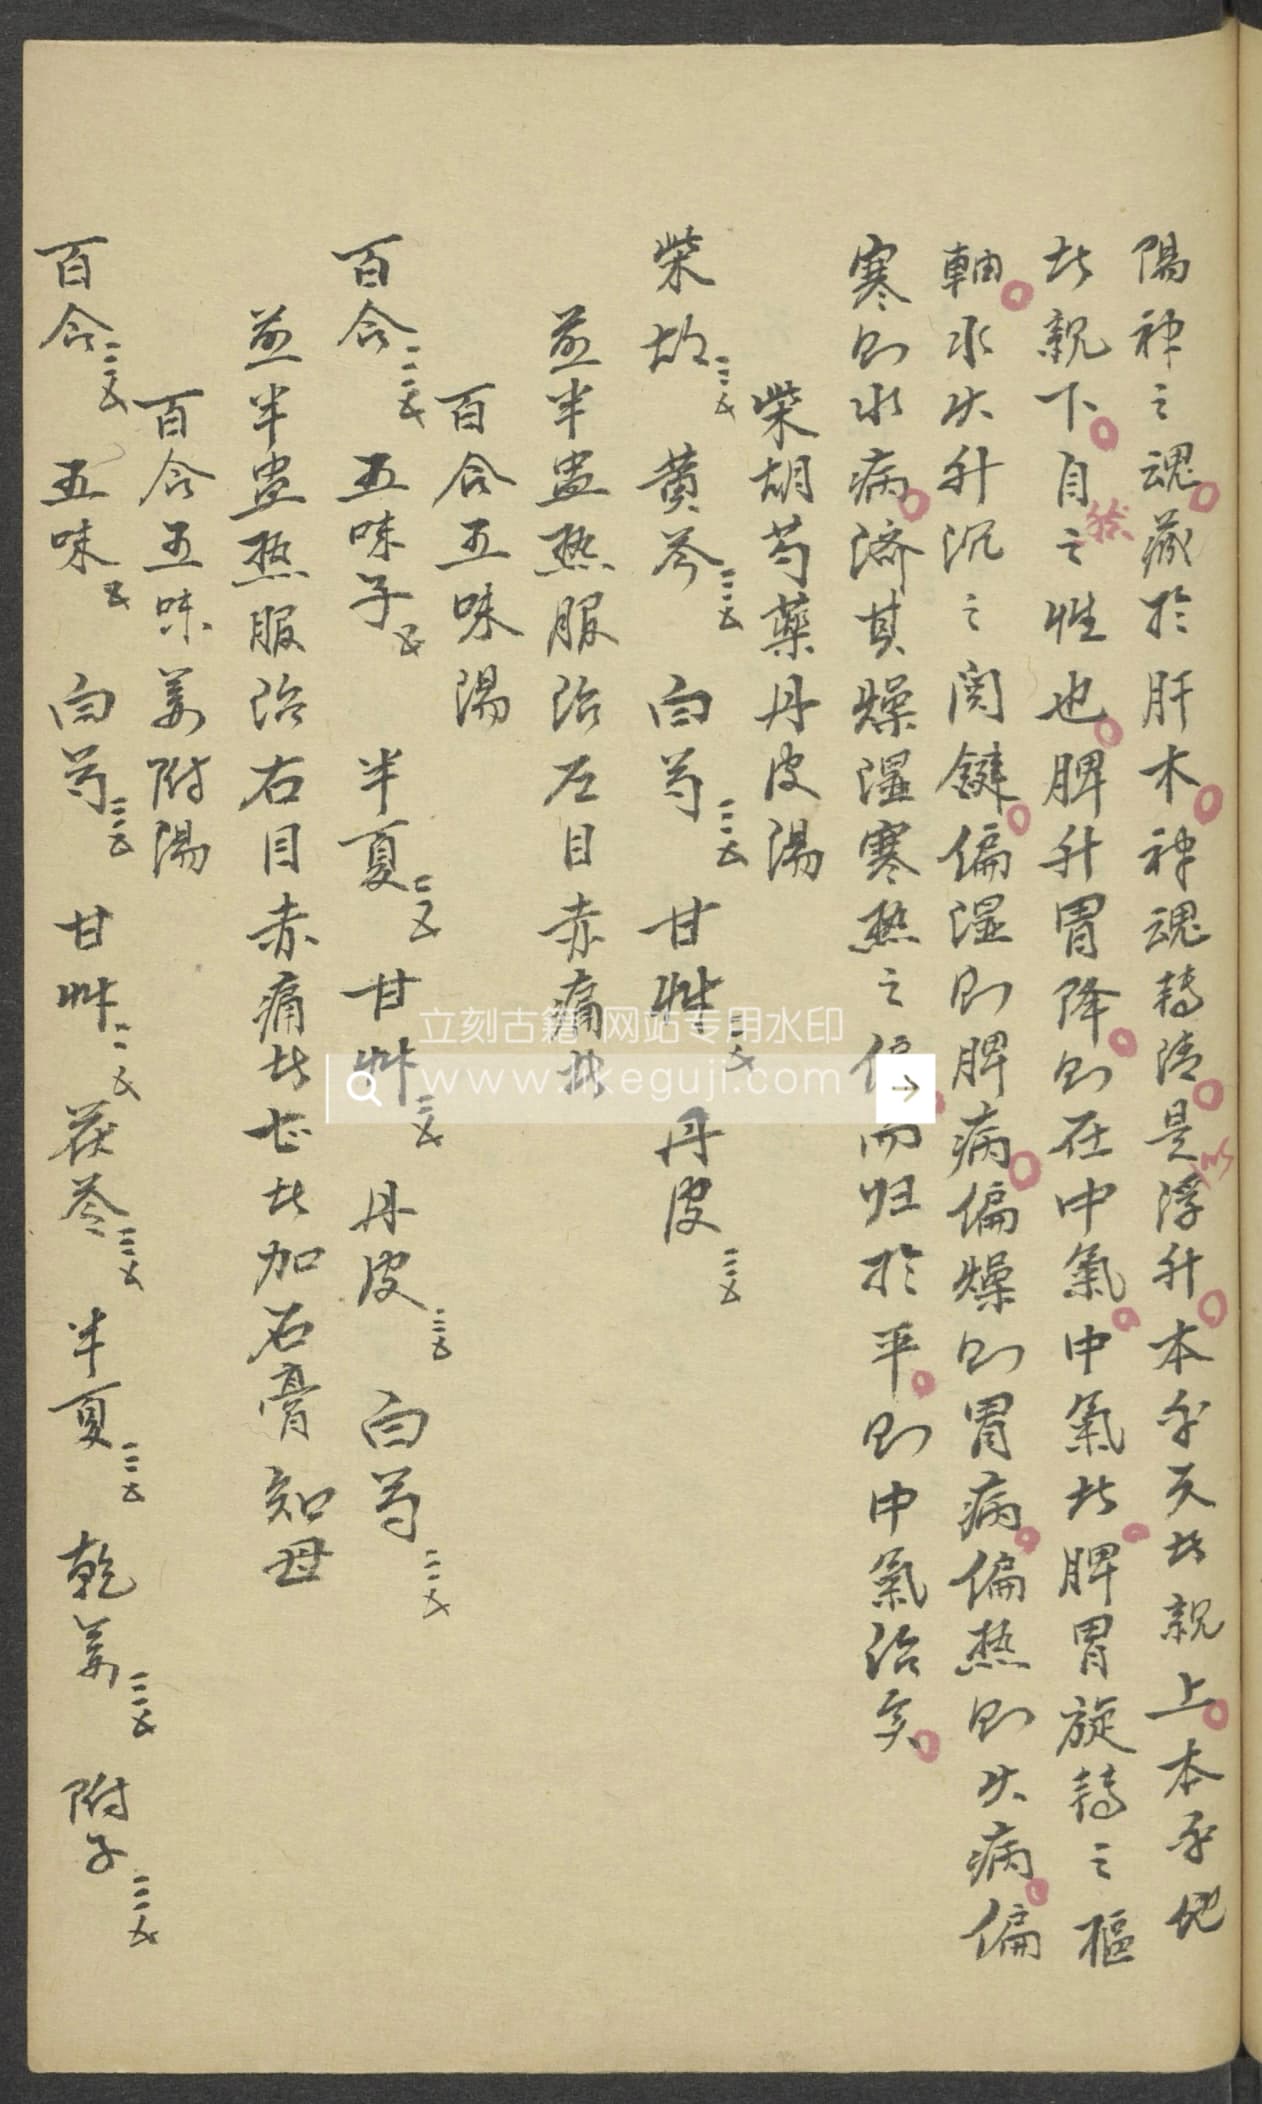 陽神之魂藏於肝木神魂轉清是以浮升本乎天者親上本乎地
者親下自然之性也脾升胃降則在中氣中氣者脾胃旋轉之樞
軸水火升沉之関鍵偏湿則脾病偏燥則胃病偏热則火病偏
寒則水病濟其燥湿寒热之偏而归於平則中氣治矣
柴胡芍藥丹皮湯
柴胡三錢 黄芩三錢 白芍三錢 甘艸二錢 丹皮三錢
煎半盃热服治左目赤痛者
百合五味湯
百合三錢 五味子錢 半夏二錢 甘艸二錢 丹皮三錢 白芍三錢
煎半盃热服治右目赤痛者 甚者加石膏知母
百合五味姜附湯
百合三錢 五味錢 白芍三錢 甘艸二錢 茯苓三錢 半夏三錢 乾姜三錢 附子三錢
立刻古籍 网站专用水印
www.likeguji.com